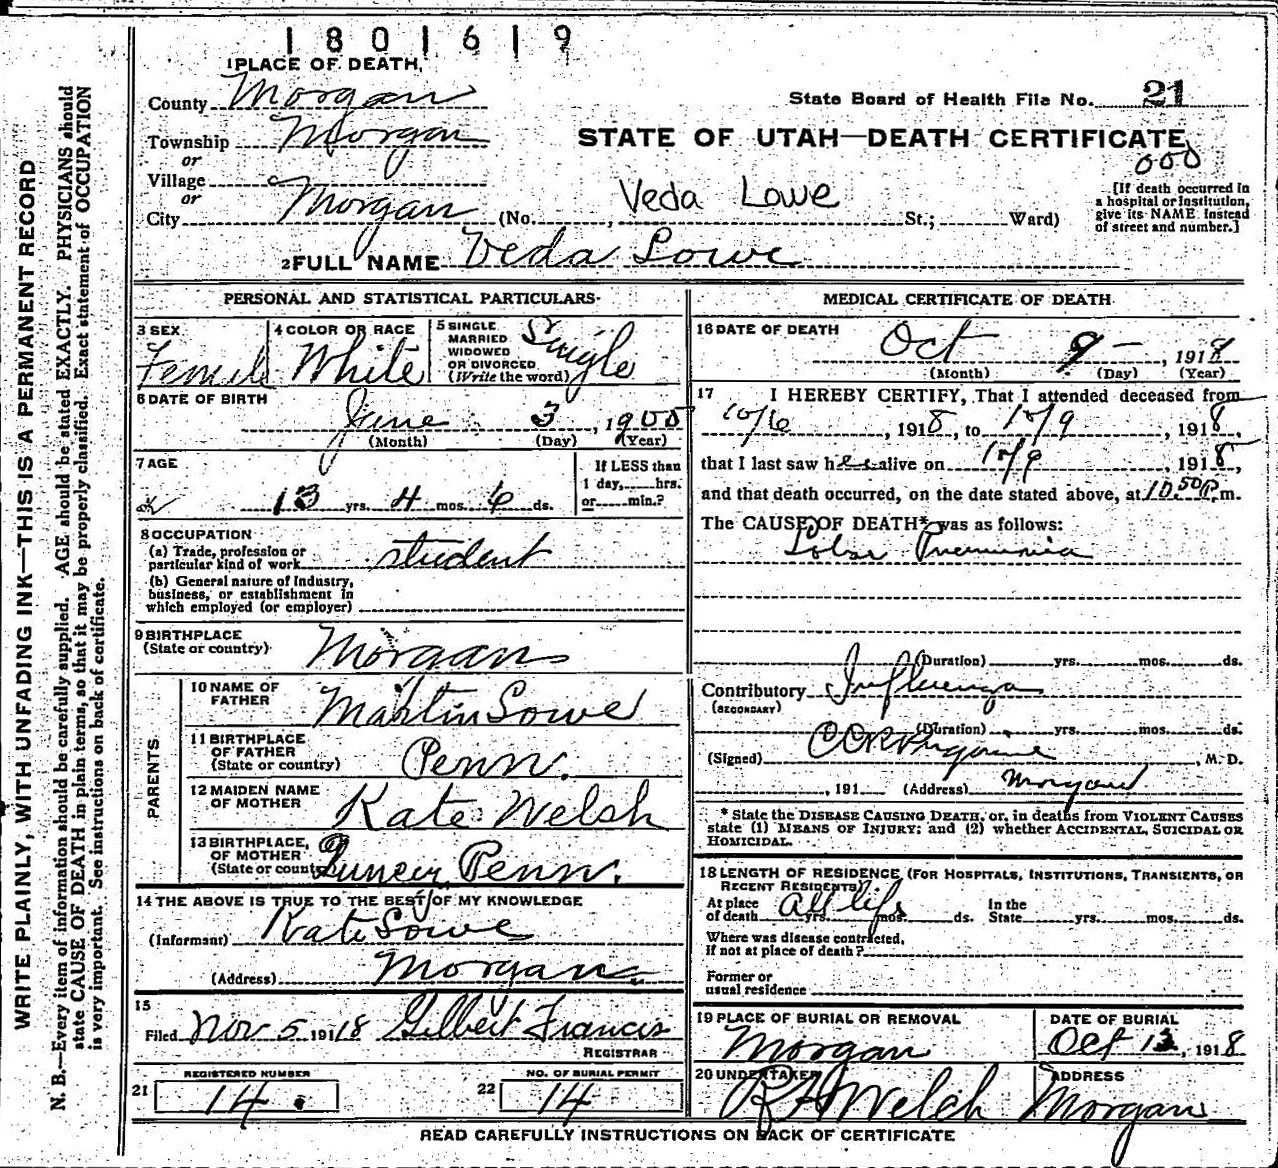 1801619
1 PLACE OF DEATH,
County Morgan
State Board of Health File No. 21
Township Morgan
or
Village
or
City Morgan (No. , Veda Lowe St.; Ward)
STATE OF UTAH—DEATH CERTIFICATE
000
[If death occurred in
a hospital or institution,
give its NAME instead
of street and number.]
2 FULL NAME Veda Lowe
PERSONAL AND STATISTICAL PARTICULARS
3 SEX
Female
4 COLOR OR RACE
White
5 SINGLE
MARRIED
WIDOWED
OR DIVORCED
(Write the word)
Single
6 DATE OF BIRTH
June 3, 1905
(Month) (Day) (Year)
7 AGE
13 yrs. 4 mos. 6 ds.
If LESS than
1 day, hrs.
or min.?
8 OCCUPATION
(a) Trade, profession or
particular kind of work student
(b) General nature of industry,
business, or establishment in
which employed (or employer)
9 BIRTHPLACE
(State or country) Morgan
PARENTS
10 NAME OF
FATHER Martin Lowe
11 BIRTHPLACE
OF FATHER
(State or country) Penn.
12 MAIDEN NAME
OF MOTHER Kate Welsh
13 BIRTHPLACE,
OF MOTHER
(State or country) Penn.
14 THE ABOVE IS TRUE TO THE BEST OF MY KNOWLEDGE
(Informant) Kate Lowe
(Address) Morgan
15
Filed Nov 5 1918 Gilbert Francis
REGISTRAR
REGISTERED NUMBER
21 14
NO. OF BURIAL PERMIT
22 14
MEDICAL CERTIFICATE OF DEATH
16 DATE OF DEATH
Oct 9 - , 1918
(Month) (Day) (Year)
17 I HEREBY CERTIFY, That I attended deceased from
10/6, 1918, to 10/9, 1918,
that I last saw her alive on 10/9, 1918,
and that death occurred, on the date stated above, at 10 50 P.m.
The CAUSE OF DEATH* was as follows:
Lobar Pneumonia
(Duration) yrs. mos. ds.
Contributory Influenza
(SECONDARY)
(Duration) yrs. mos. ds.
(Signed) , M. D.
, 191 (Address) Morgan
* State the DISEASE CAUSING DEATH, or, in deaths from VIOLENT CAUSES
state (1) MEANS OF INJURY; and (2) whether ACCIDENTAL, SUICIDAL OR
HOMICIDAL.
18 LENGTH OF RESIDENCE (FOR HOSPITALS, INSTITUTIONS, TRANSIENTS, OR
RECENT RESIDENTS)
At place
of death All life yrs. mos. ds. In the
State yrs. mos. ds.
Where was disease contracted,
if not at place of death?
Former or
usual residence
19 PLACE OF BURIAL OR REMOVAL
Morgan
DATE OF BURIAL
Oct 13, 1918
20 UNDERTAKER
R A Welch
ADDRESS
Morgan
READ CAREFULLY INSTRUCTIONS ON BACK OF CERTIFICATE
WRITE PLAINLY, WITH UNFADING INK—THIS IS A PERMANENT RECORD
N. B.—Every item of information should be carefully supplied. AGE should be stated EXACTLY. PHYSICIANS should
state CAUSE OF DEATH in plain terms, so that it may be properly classified. Exact statement of OCCUPATION
is very important. See instructions on back of certificate.